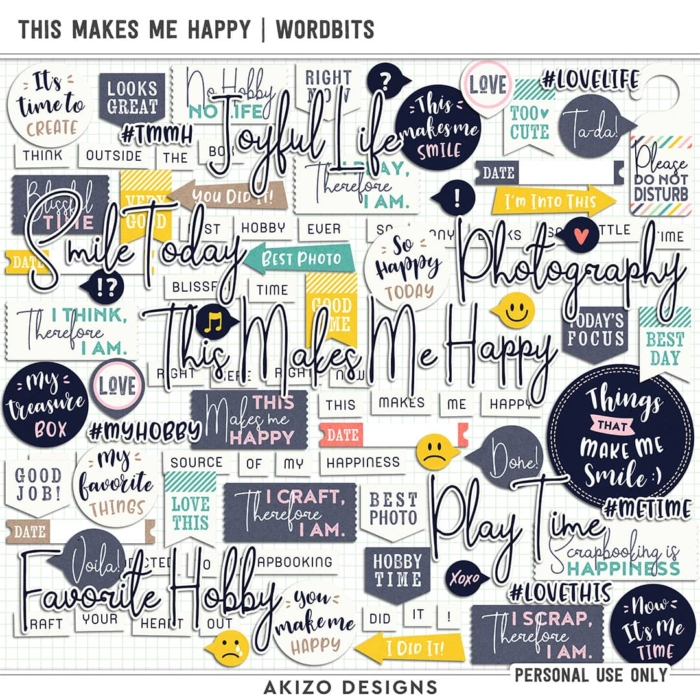 THIS MAKES ME HAPPY | WORDBITS
It's
time to
CREATE
LOOKS
GREAT
No Hobby
NO LIFE
RIGHT
NOW
?
This
makes me
SMILE
LOVE
#LOVELIFE
TOO
CUTE
Ta-da!
#TMMH
Joyful Life
THINK OUTSIDE THE BOX
I PLAY,
Therefore
I AM.
DATE
Please
DO NOT
DISTURB
Blissful
TIME
VERY
GOOD
YOU DID IT!
!
I'M INTO THIS
Smile Today
HOBBY EVER
SO
TIME
DATE
BEST PHOTO
So
Happy
TODAY
Photography
!?
BLISSFUL TIME
GOOD
TIME
I THINK,
Therefore
I AM.
This Makes Me Happy
TODAY'S
FOCUS
BEST
DAY
RIGHT HERE RIGHT NOW
My
treasure
BOX
LOVE
THIS
Makes me
HAPPY
THIS MAKES ME HAPPY
Things
THAT
MAKE ME
Smile :)
#MYHOBBY
DATE
Done!
GOOD
JOB!
My
favorite
THINGS
SOURCE OF MY HAPPINESS
LOVE
THIS
I CRAFT,
Therefore
I AM.
BEST
PHOTO
Play Time
#METIME
DATE
Scrapbooking is
HAPPINESS
Voila!
HOBBY
TIME
xoxo
#LOVETHIS
Favorite Hobby
you
make me
HAPPY
YOUR HEART OUT
DID IT !
I SCRAP,
Therefore
I AM.
Now
It's Me
TIME
I DID IT!
PERSONAL USE ONLY
AKIZO DESIGNS